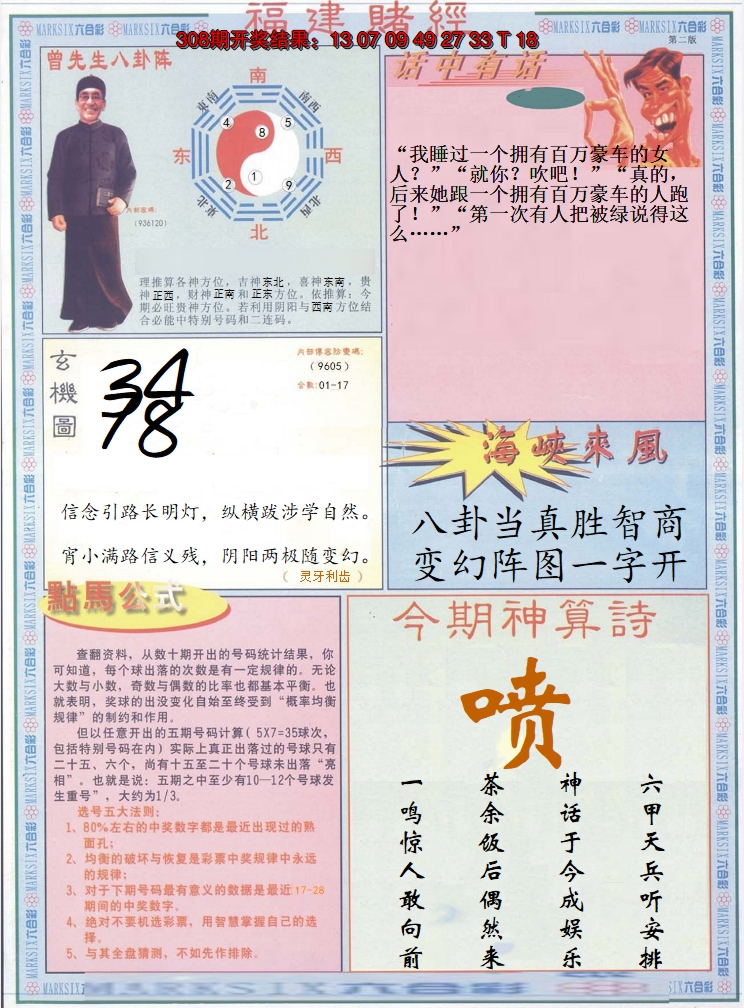 福建賭經
308期开奖结果：13 07 09 49 27 33 T 18
MARKSIX六合彩
第二版
曾先生八卦阵
南
东南
南西
4
5
8
东
西
2
1
9
东北
北西
北
内部密码:
(936120)
理推算各神方位，吉神东北，喜神东南，贵
神正西，财神正南和正东方位。依推算：今
期必旺贵神方位。若利用阴阳与西南方位结
合必能中特别号码和二连码。
话中有话
“我睡过一个拥有百万豪车的女
人？”“就你？吹吧！”“真的，
后来她跟一个拥有百万豪车的人跑
了！”“第一次有人把被绿说得这
么……”
玄機圖
34
78
（9605）
合数:01-17
信念引路长明灯，纵横跋涉学自然。
宵小满路信义残，阴阳两极随变幻。
（ 灵牙利齿 ）
海峡來風
八卦当真胜智商
变幻阵图一字开
點馬公式
查翻资料，从数十期开出的号码统计结果，你
可知道，每个球出落的次数是有一定规律的。无论
大数与小数，奇数与偶数的比率也都基本平衡。也
就表明，奖球的出没变化自始至终受到“概率均衡
规律”的制约和作用。
但以任意开出的五期号码计算( 5X7=35球次，
包括特别号码在内）实际上真正出落过的号球只有
二十五、六个，尚有十五至二十个号球未出落“亮
相”。也就是说：五期之中至少有10—12个号球发
生重号”，大约为1/3。
选号五大法则：
1、80%左右的中奖数字都是最近出现过的熟
面孔；
2、均衡的破坏与恢复是彩票中奖规律中永远
的规律；
3、对于下期号码最有意义的数据是最近17-28
期间的中奖数字。
4、绝对不要机选彩票，用智慧掌握自己的选
择。
5、与其全盘猜测，不如先作排除。
今期神算詩
喷
六甲天兵听安排
神话于今成娱乐
茶余饭后偶然来
一鸣惊人敢向前